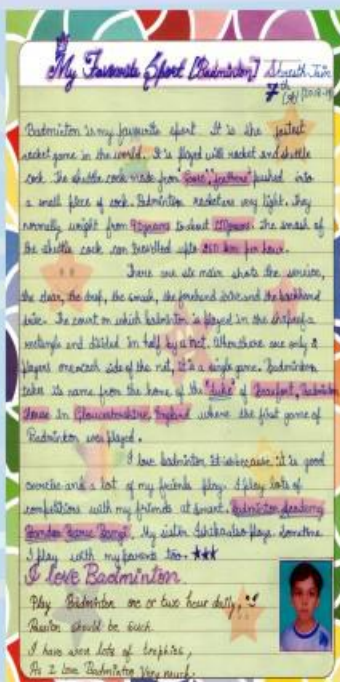 My Favourite Sport [Badminton]
7th
Badminton is my favourite sport. It is the fastest
racket game in the world. It is played with racket and shuttle
cock. The shuttle cock made from "Goose", "feathers" pushed into
a small piece of cork. Badminton rackets are very light. They
normally weight from 90grams to about 110grams. The smash of
the shuttle cock can travelled upto 260 km per hour.
There are six main shots the service,
the clear, the drop, the smash, the forehand drive and the backhand
drive. The court on which badminton is played in the shape of a
rectangle and divided in half by a net. When there are only 2
players one on each side of the net, it is a single game. Badminton
takes its name from the home of the "Duke" of Beaufort, Badminton
House in Gloucestershire, England where the first game of
Badminton was played.
I love badminton it is because it is good
exercise and a lot of my friends play. I play lots of
competitions with my friends at smart, Badminton Academy
My sister also plays. Sometime
I play with my parents too.
I love Badminton
Play Badminton one or two hour daily,
Passion should be such
I have won lots of trophies,
As I Love Badminton Very much.